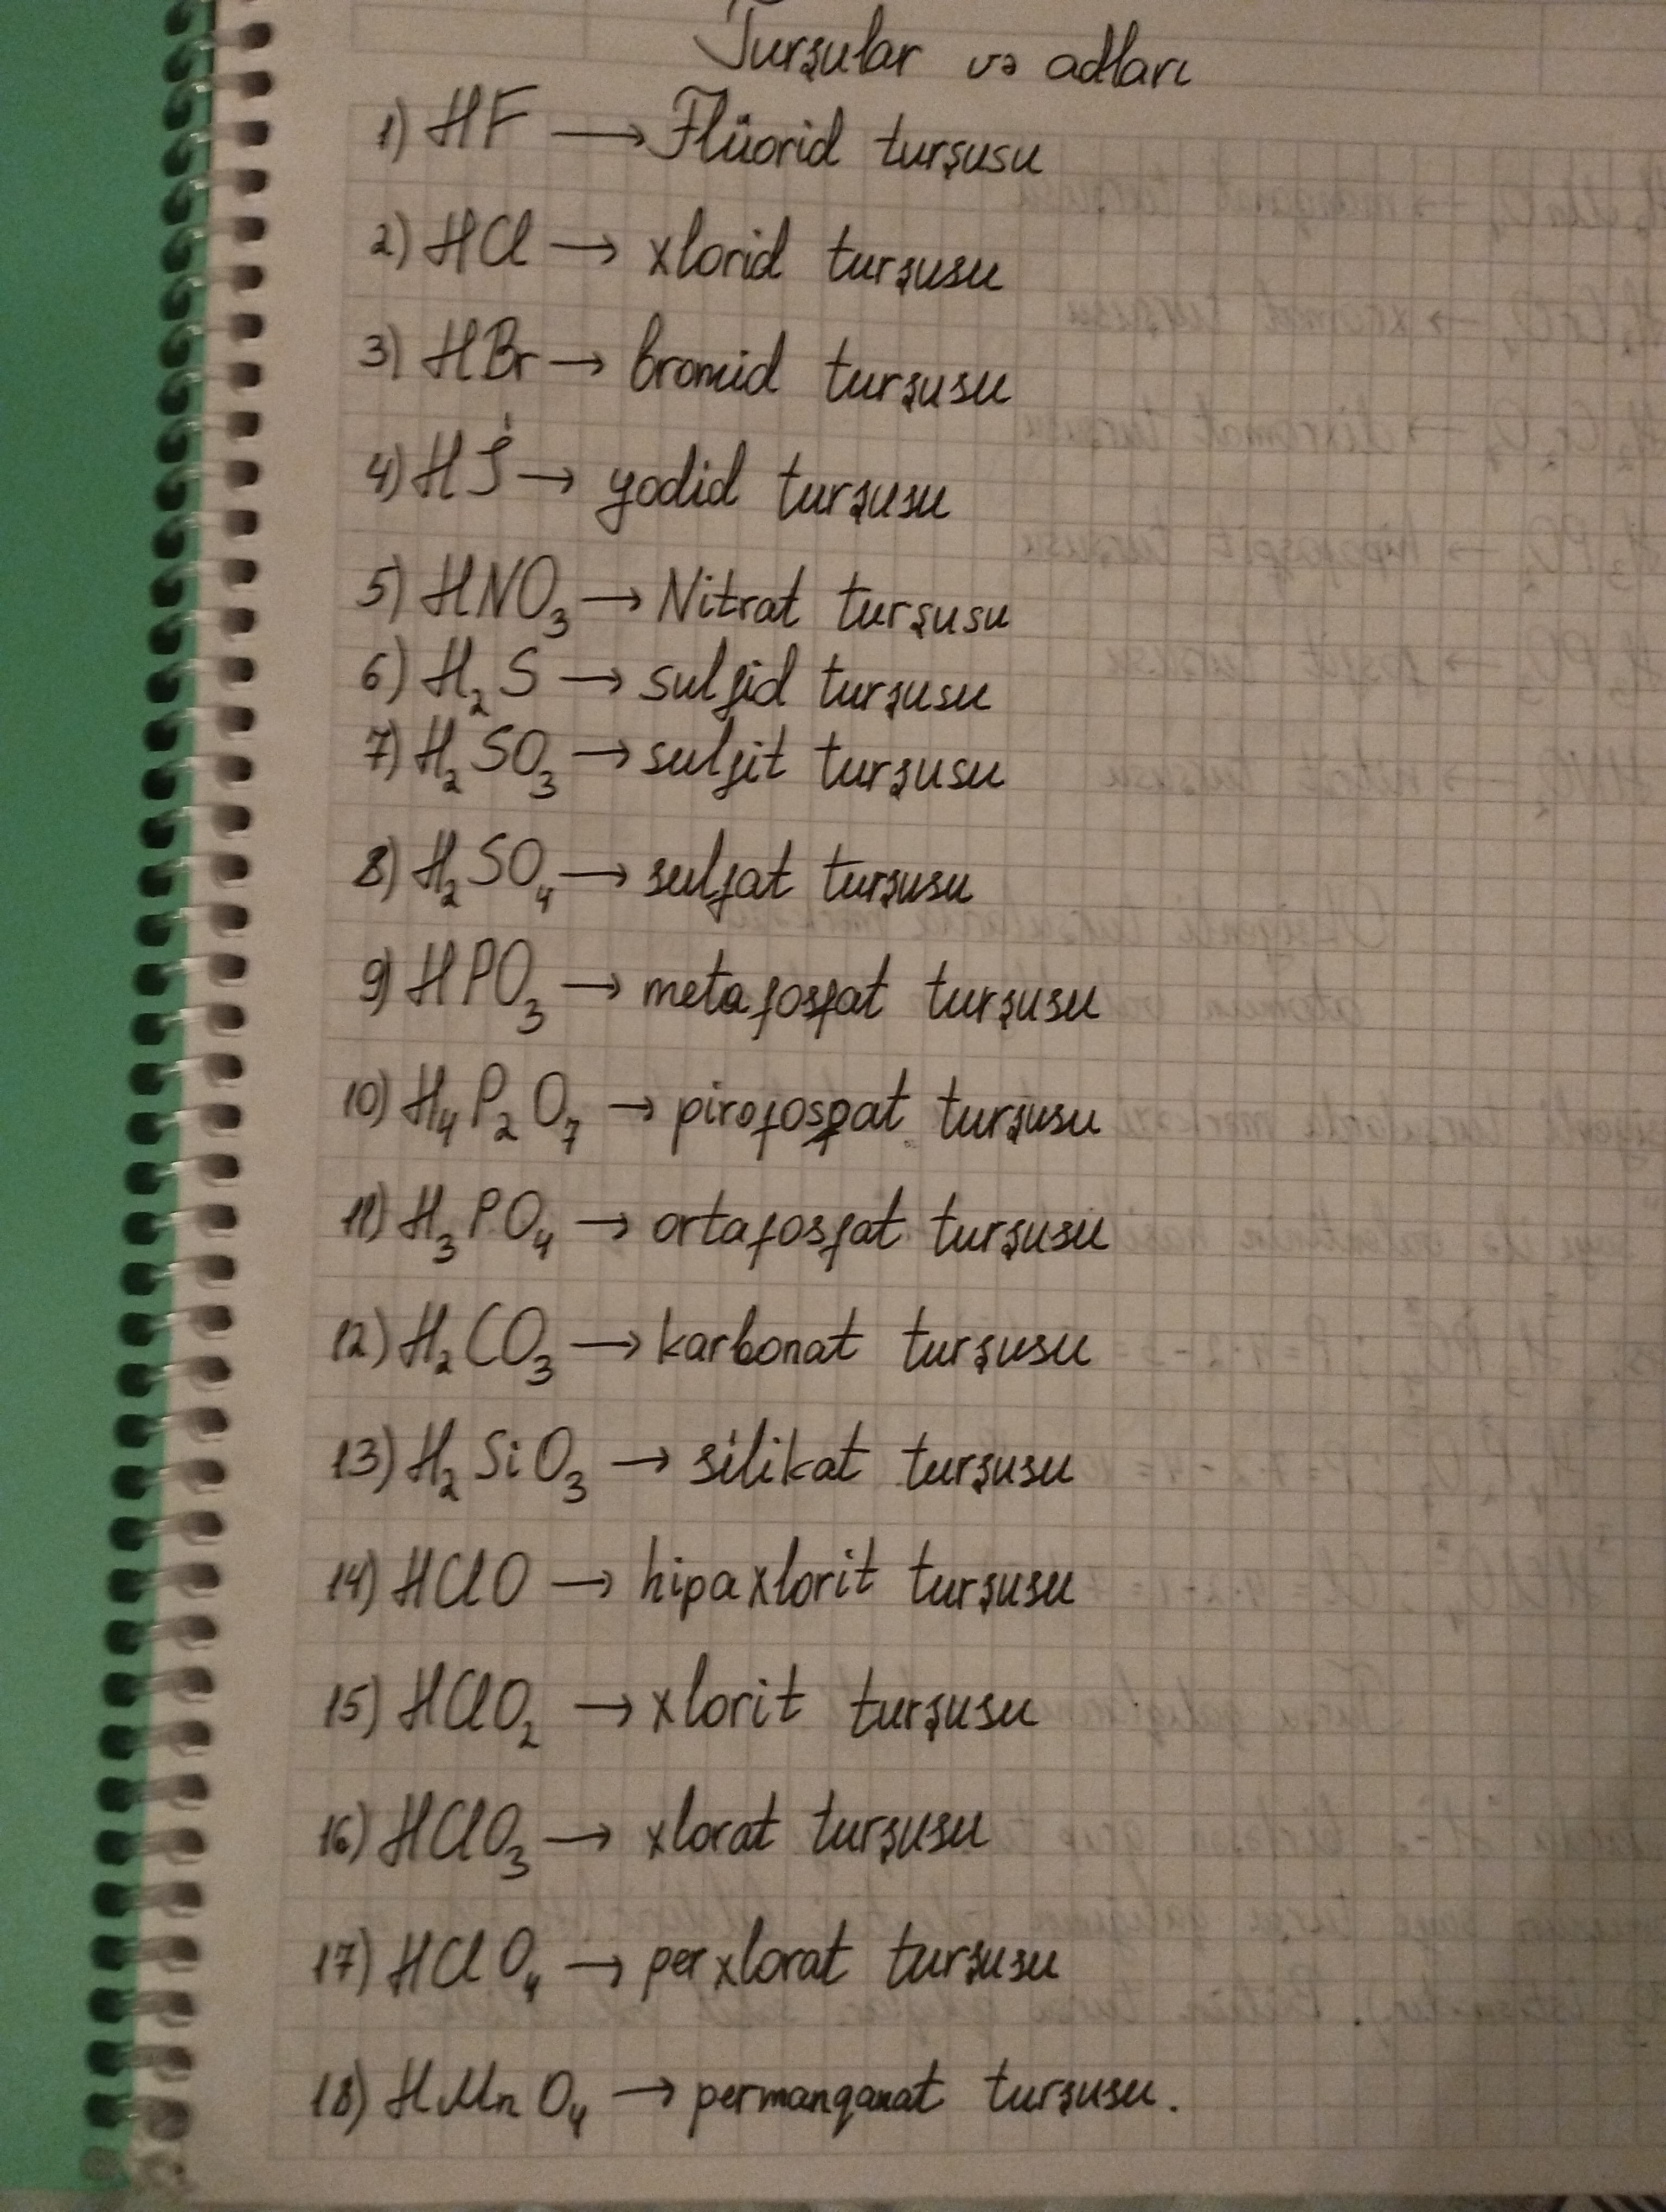 Turşular və adları
1) HF → Flüorid turşusu
2) HCl → xlorid turşusu
3) HBr → bromid turşusu
4) Hİ → yodid turşusu
5) HNO₃ → Nitrat turşusu
6) H₂S → sulfid turşusu
7) H₂SO₃ → sulfit turşusu
8) H₂SO₄ → sulfat turşusu
9) HPO₃ → metafosfat turşusu
10) H₄P₂O₇ → pirofosfat turşusu
11) H₃PO₄ → ortafosfat turşusu
12) H₂CO₃ → karbonat turşusu
13) H₂SiO₃ → silikat turşusu
14) HClO → hipaxlorit turşusu
15) HClO₂ → xlorit turşusu
16) HClO₃ → xlorat turşusu
17) HClO₄ → perxlorat turşusu
18) HMnO₄ → permanqanat turşusu.